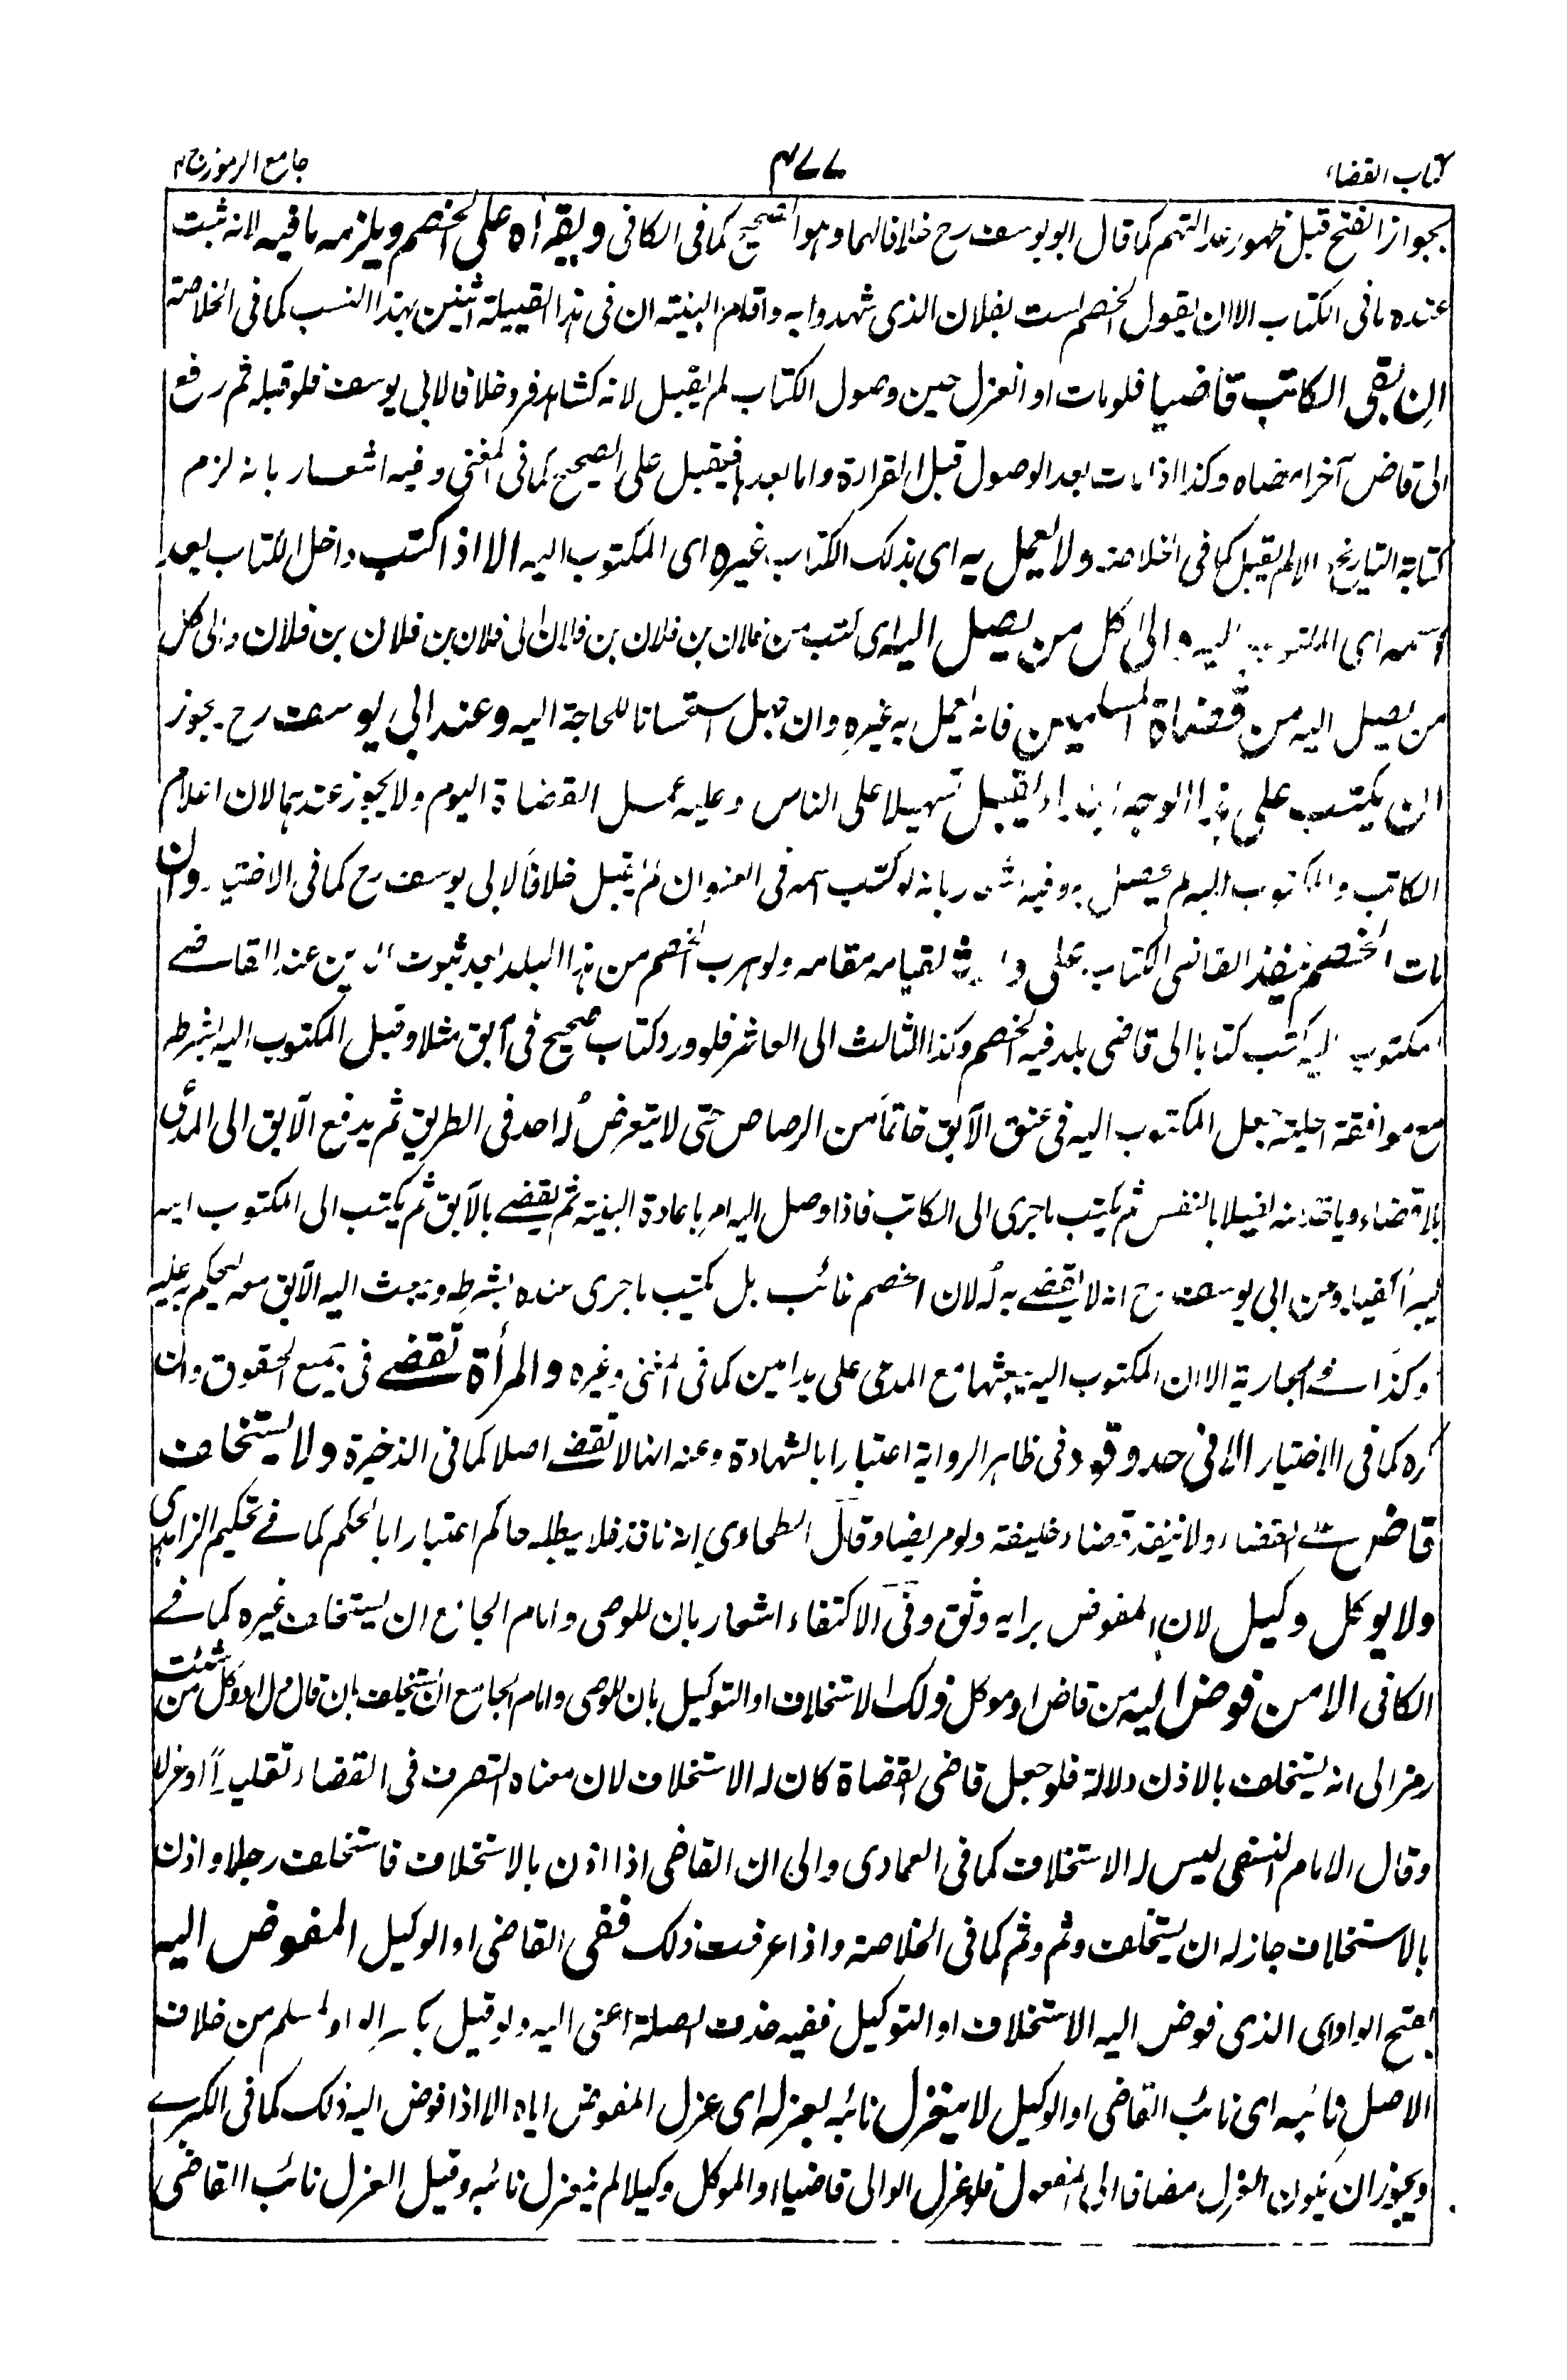 كتاب القضاء
٤٧٧
جامع الرموز ج٢
بجواز الفتح قبل ظهور عدالتهم كما قال ابو يوسف رح خلافا لهما وهو الصحيح كما فى الكافى ويقرأه على الخصم ويلزمه ما فيه لانه ثبت
عنده ما فى الكتاب الا ان يقول الخصم لست بفلان الذى شهدوا به واقام البينة ان فى هذا القبيلة اثنين بهذا النسب كما فى الخلاصة
ان بقى الكاتب قاضيا فلو مات او انعزل حين وصول الكتاب لم يقبل لانه كشاهد فرد خلافا لابى يوسف فلو قبله ثم رفع
الى قاض آخر امضاه وكذا اذا مات بعد الوصول قبل القراءة واما بعدها فيقبل على الصحيح كما فى المغنى وفيه اشعار بانه لزم
كتابة التاريخ والا لم يقبل كما فى الخلاصة ولا يعمل به اى بذلك الكتاب غيره اى المكتوب اليه الا اذا كتب داخل الكتاب بعد
اسمه اى المكتوب اليه والى كل من يصل اليه اى كتب من فلان بن فلان بن فلان الى فلان بن فلان بن فلان والى كل
من يصل اليه من قضاة المسلمين فانه يعمل به غيره وان جهل استحسانا للحاجة اليه وعند ابى يوسف رح يجوز
ان يكتب على هذا الوجه ابتداء ليقبل تسهيلا على الناس وعليه عمل القضاة اليوم ولا يجوز عندهما لان اعلام
الكاتب والمكتوب اليه لم يحصل به وفيه اشعار بانه لو كتب اسمه فى العنوان لم يقبل خلافا لابى يوسف رح كما فى الاختيار وان
مات الخصم ينفذ القاضى الكتاب على وارثه لقيامه مقامه ولو هرب الخصم من هذا البلد بعد ثبوت الدين عند القاضے
المكتوب اليه كتب كتابا الى قاضى بلد فيه الخصم وكذا الثالث الى العاشر فلو ورد كتاب صحيح فى آبق مثلا وقبل المكتوب اليه بشرطه
مع موافقة الحلية جعل المكتوب اليه فى عنق الآبق خاتما من الرصاص حتى لا يتعرض له احد فى الطريق ثم يدفع الآبق الى المدعى
بلا قضاء وياخذ منه كفيلا بالنفس ثم يكتب ما جرى الى الكاتب فاذا وصل اليه امر باعادة البينة ثم يقضے بالآبق ثم يكتب الى المكتوب اليه
ليبرأ كفيله وعن ابى يوسف رح انه لا يقضے به له لان الخصم غائب بل يكتب ما جرى عنده بشرطه ويبعث اليه الآبق معه ليحكم به عليه
وكذا فے الجارية الا ان المكتوب اليه يبعثها مع المدعى على يد امين كما فى المغنى وغيره والمرأة تقضے فى جميع الحقوق وان
كره كما فى الاختيار الا فى حد وقود فى ظاهر الرواية اعتبارا بالشهادة وعنه انها لا تقضے اصلا كما فى الذخيرة ولا يستخلف
قاض على القضاء ولا ينفذ قضاء خليفة ولو مريضا وقال الطحاوى انه نافذ فلا يبطله حاكم اعتبارا بالحكم كما فے تحكيم الزاهدى
ولا يوكل وكيل لان المفوض برايه وثق وفى الاكتفاء اشعار بان للوصى وامام الجامع ان يستخلف غيره كما فے
الكافى الا من فوض اليه من قاض او موكل ذلك الاستخلاف او التوكيل بان للوصى وامام الجامع ان يستخلف بان قال ول او وكل من شئت
رمز الى انه يستخلف بالاذن دلالة فلو جعل قاضى القضاة كان له الاستخلاف لان معناه التصرف فى القضاء تقليدا او عزلا
وقال الامام النسفى ليس له الاستخلاف كما فى العمادى والى ان القاضى اذا اذن بالاستخلاف فاستخلف رجلا واذن
بالاستخلاف جاز له ان يستخلف وثم وثم كما فى الخلاصة واذا عرفت ذلك ففى القاضى او الوكيل المفوض اليه
بفتح الواو اى الذى فوض اليه الاستخلاف او التوكيل ففيه حذف الصلة اعنى اليه ولو قيل بكسر الواو لسلم من خلاف
الاصل نائبه اى نائب القاضى او الوكيل لا ينعزل نائبه بعزله اى عزل المفوض اياه الا اذا فوض اليه ذلك كما فى الكبرے
ويجوز ان يكون العزل مضافا الى المفعول فلو عزل الوالى قاضيا او الموكل وكيلا لم ينعزل نائبه وقيل العزل نائب القاضى